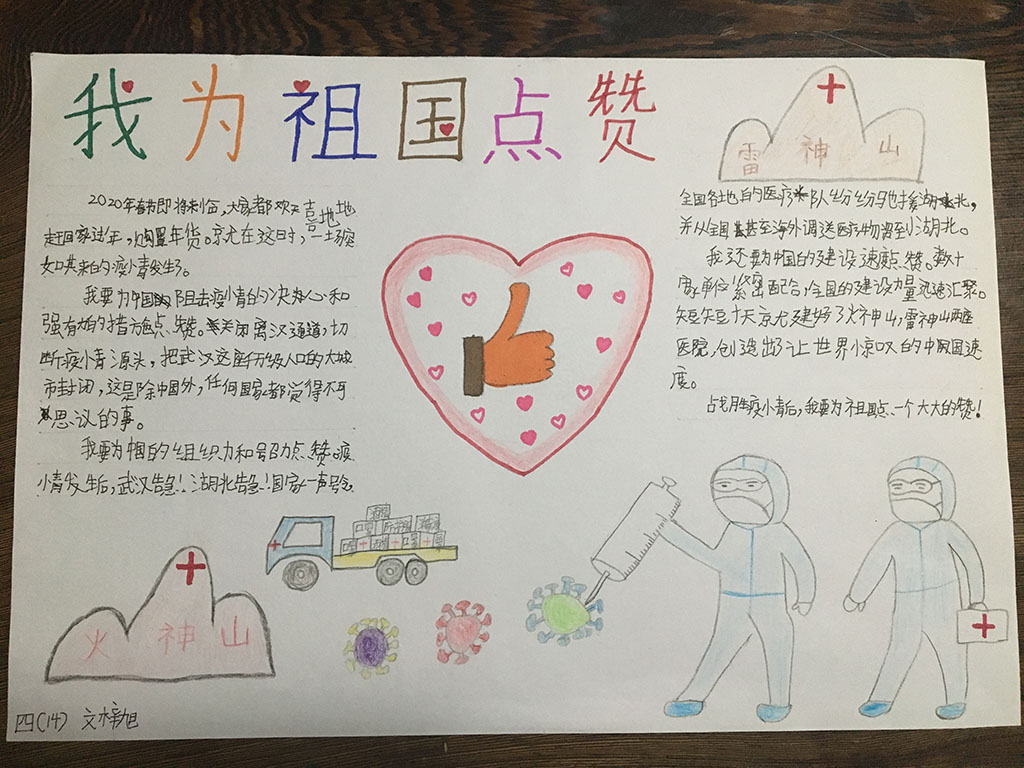 我为祖国点赞
2020年春节即将来临,大家都欢天喜地地
赶回家过年,购置年货。就在这时,一场突
如其来的疫情发生了。
我要为中国阻击疫情的决心和
强有力的措施点赞。关闭离汉通道,切
断疫情源头,把武汉这座千万级人口的大城
市封闭,这是除中国外,任何国家都觉得不可
思议的事。
我要为中国的组织力和号召力点赞。疫
情发生后,武汉告急!湖北告急!国家一声号令
雷神山
全国各地的医疗队纷纷驰援湖北,
并从全国甚至海外调送医疗物资到湖北。
我还要为中国的建设速度点赞。数十
家单位紧密配合,全国的建设力量迅速汇聚。
短短十天就建好了火神山,雷神山两座
医院,创造出了让世界惊叹的中国速
度。
战胜疫情后,我要为祖国点一个大大的赞!
火神山
四(14) 文梓旭